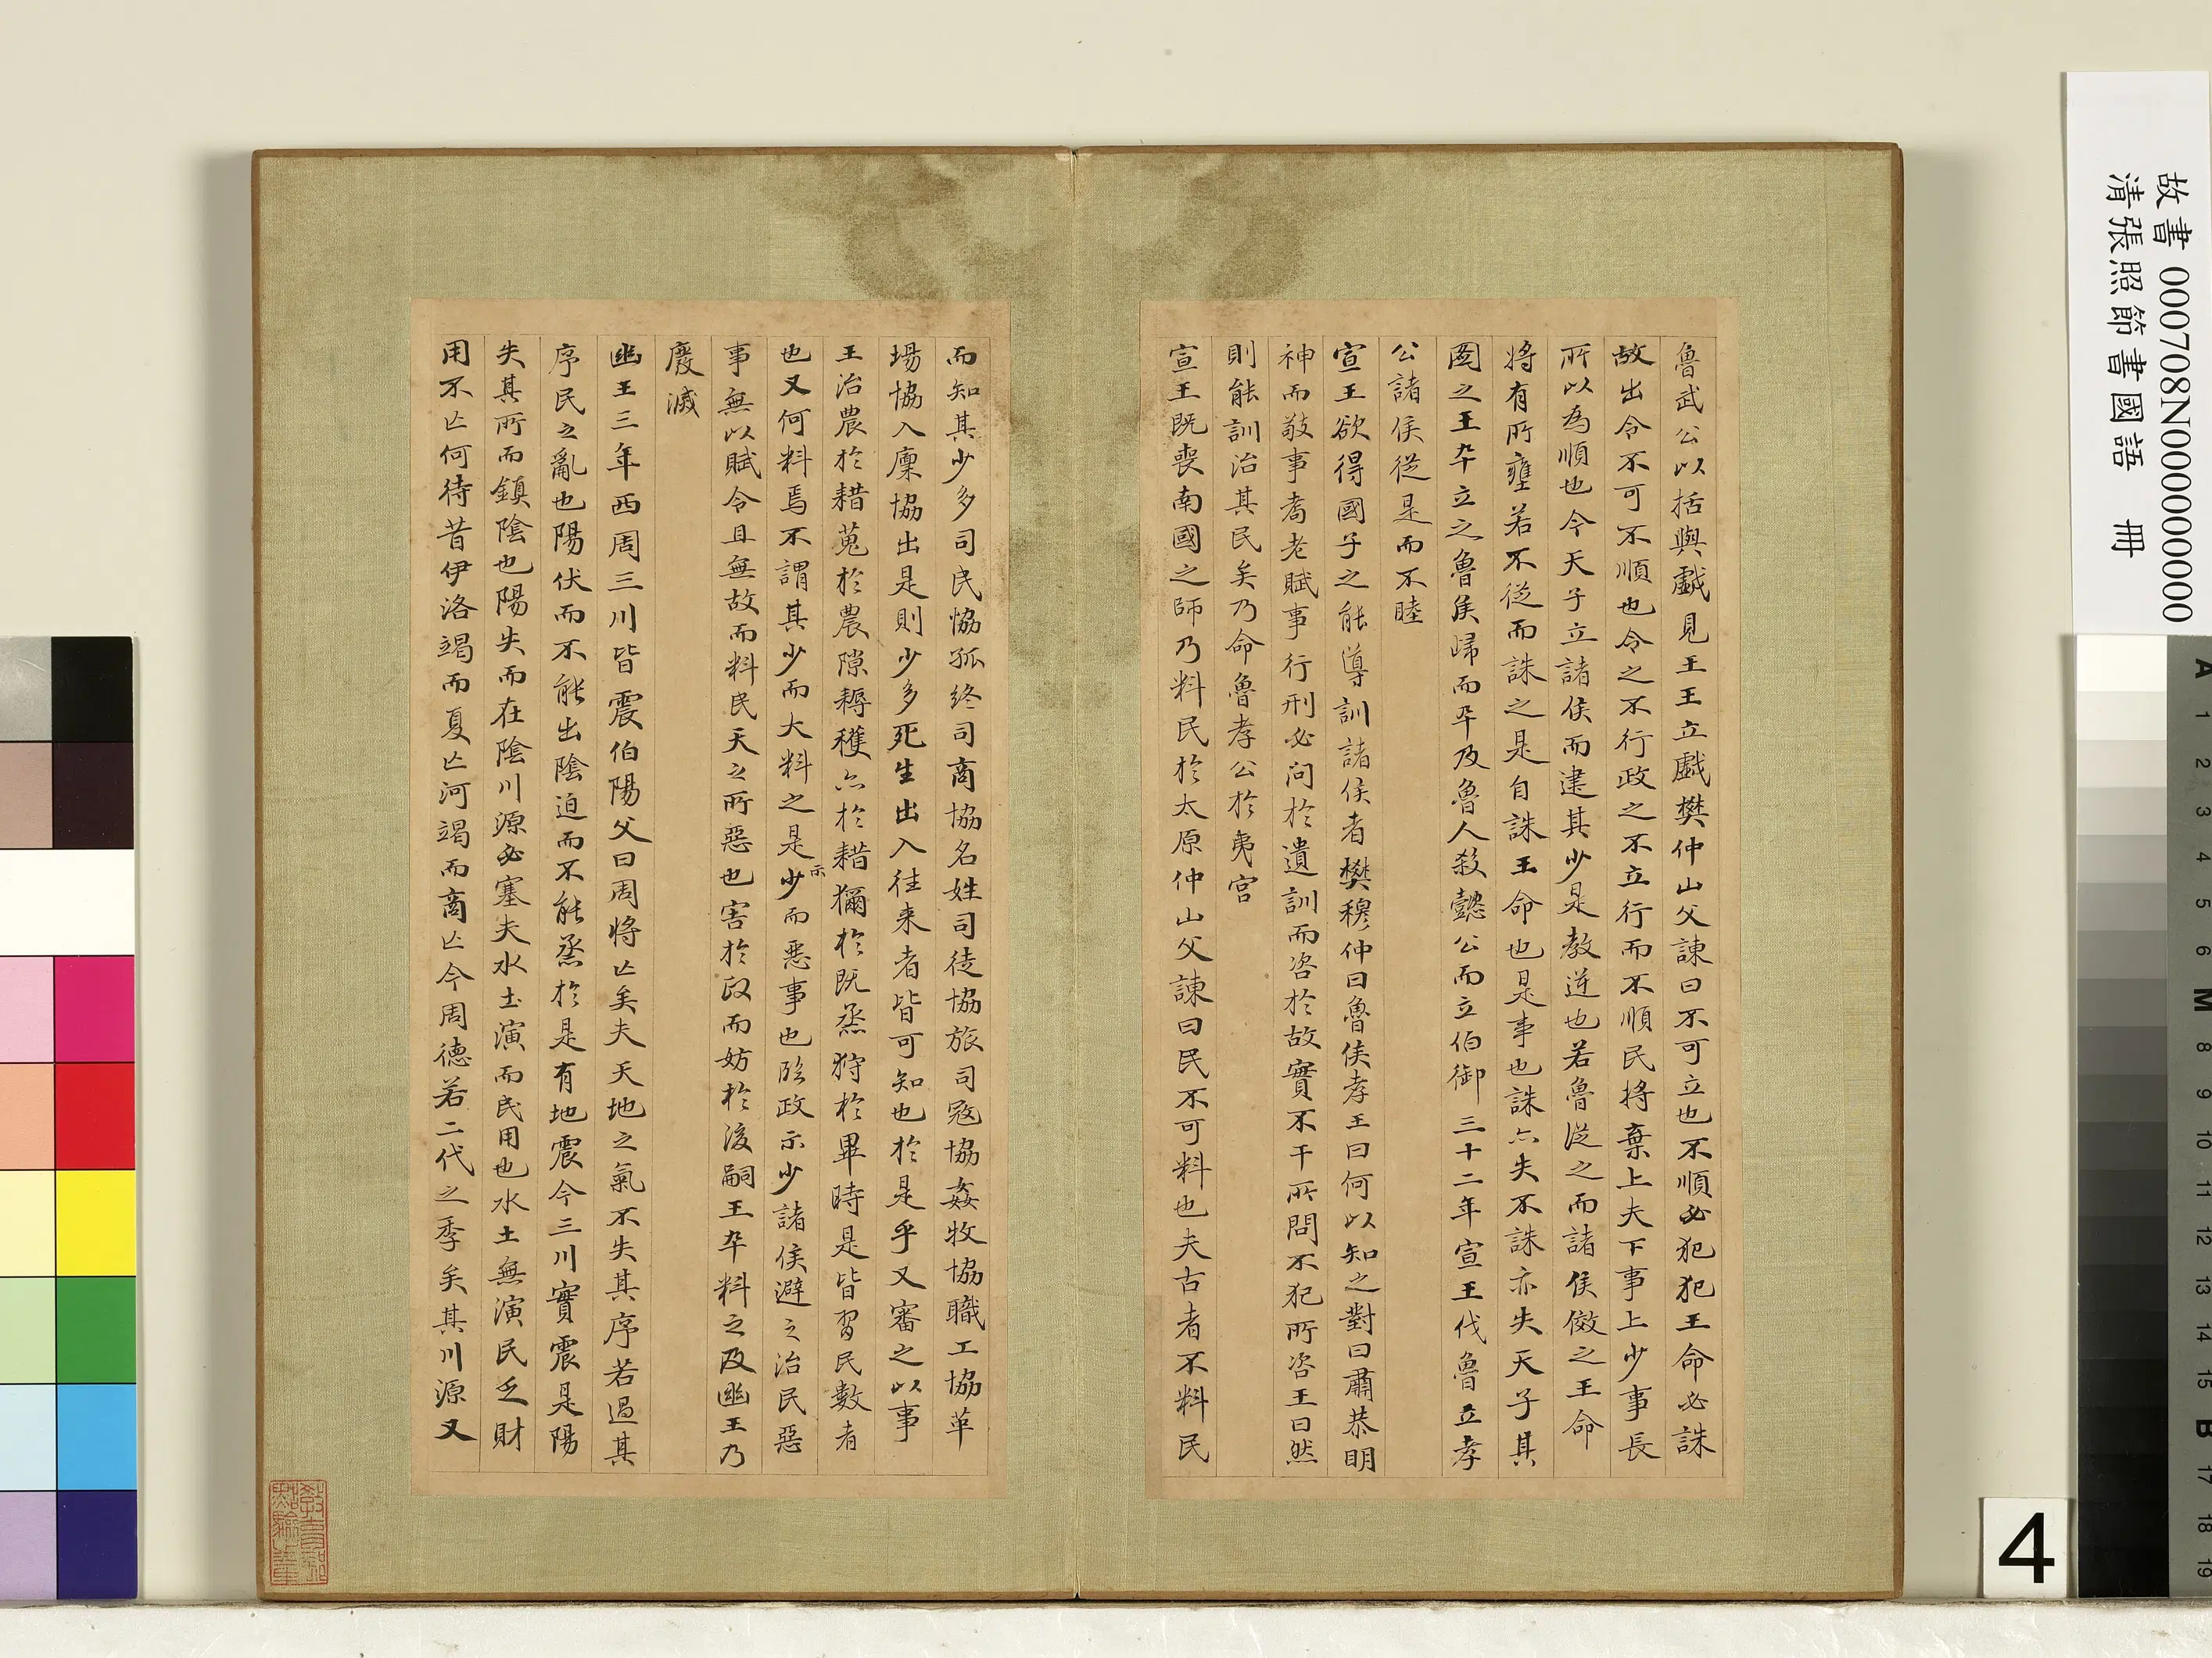 魯武公以括與戲見王王立戲樊仲山父諫曰不可立也不順必犯犯王命必誅
故出令不可不順也令之不行政之不立行而不順民將棄上夫下事上少事長
所以為順也今天子立諸侯而建其少是教逆也若魯從之而諸侯傚之王命
將有所壅若不從而誅之是自誅王命也是事也誅亦失不誅亦失天子其
圖之王卒立之魯侯歸而卒及魯人殺懿公而立伯御三十二年宣王伐魯立孝
公諸侯從是而不睦
宣王欲得國子之能導訓諸侯者樊穆仲曰魯侯孝王曰何以知之對曰肅恭明
神而敬事耇老賦事行刑必問於遺訓而咨於故實不干所問不犯所咨王曰然
則能訓治其民矣乃命魯孝公於夷宮
宣王既喪南國之師乃料民於太原仲山父諫曰民不可料也夫古者不料民
而知其少多司民協孤終司商協名姓司徒協旅司寇協姦牧協職工協革
場協入廩協出是則少多死生出入往來者皆可知也於是乎又審之以事
王治農於耤蒐於農隙耨穫亦於耤獮於既烝狩於畢時是皆習民數者
也又何料焉不謂其少而大料之是示少而惡事也臨政示少諸侯避之治民惡
事無以賦令且無故而料民天之所惡也害於政而妨於後嗣王卒料之及幽王乃
廢滅
幽王三年西周三川皆震伯陽父曰周將亡矣夫天地之氣不失其序若過其
序民之亂也陽伏而不能出陰迫而不能烝於是有地震今三川實震是陽
失其所而鎮陰也陽失而在陰川源必塞夫水土演而民用也水土無演民乏財
用不亡何待昔伊洛竭而夏亡河竭而商亡今周德若二代之季矣其川源又
故書 000708N000000000
清張照節書國語 冊
4
A 1 2 3 4 5 6 M 8 9 10 11 12 13 14 15 B 17 18 19